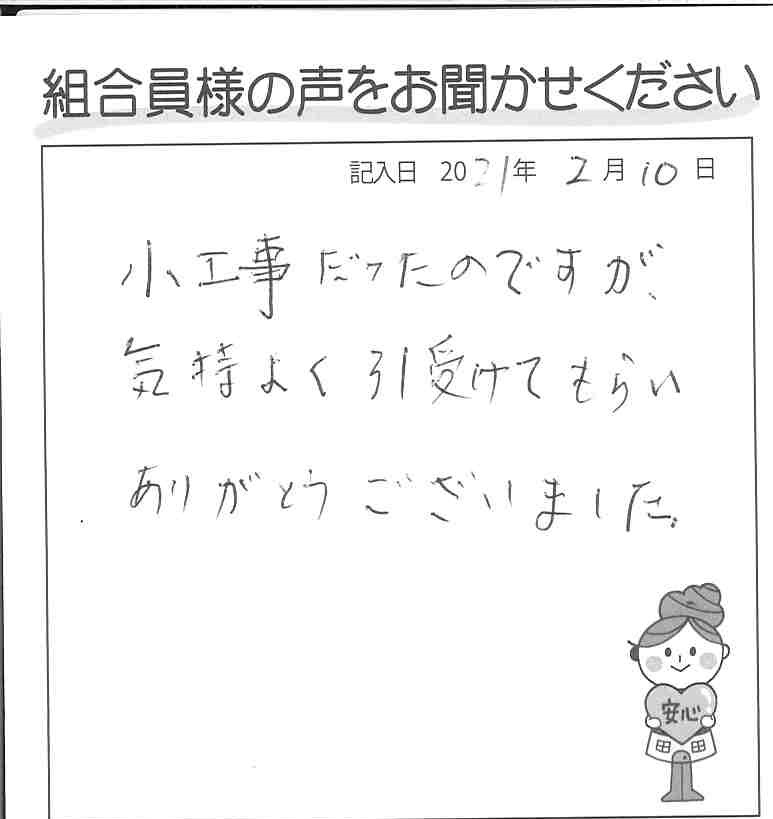 組合員様の声をお聞かせください
記入日 2021年 2月10日
小工事だったのですが、
気持よく引受けてもらい
ありがとうございました。
安心